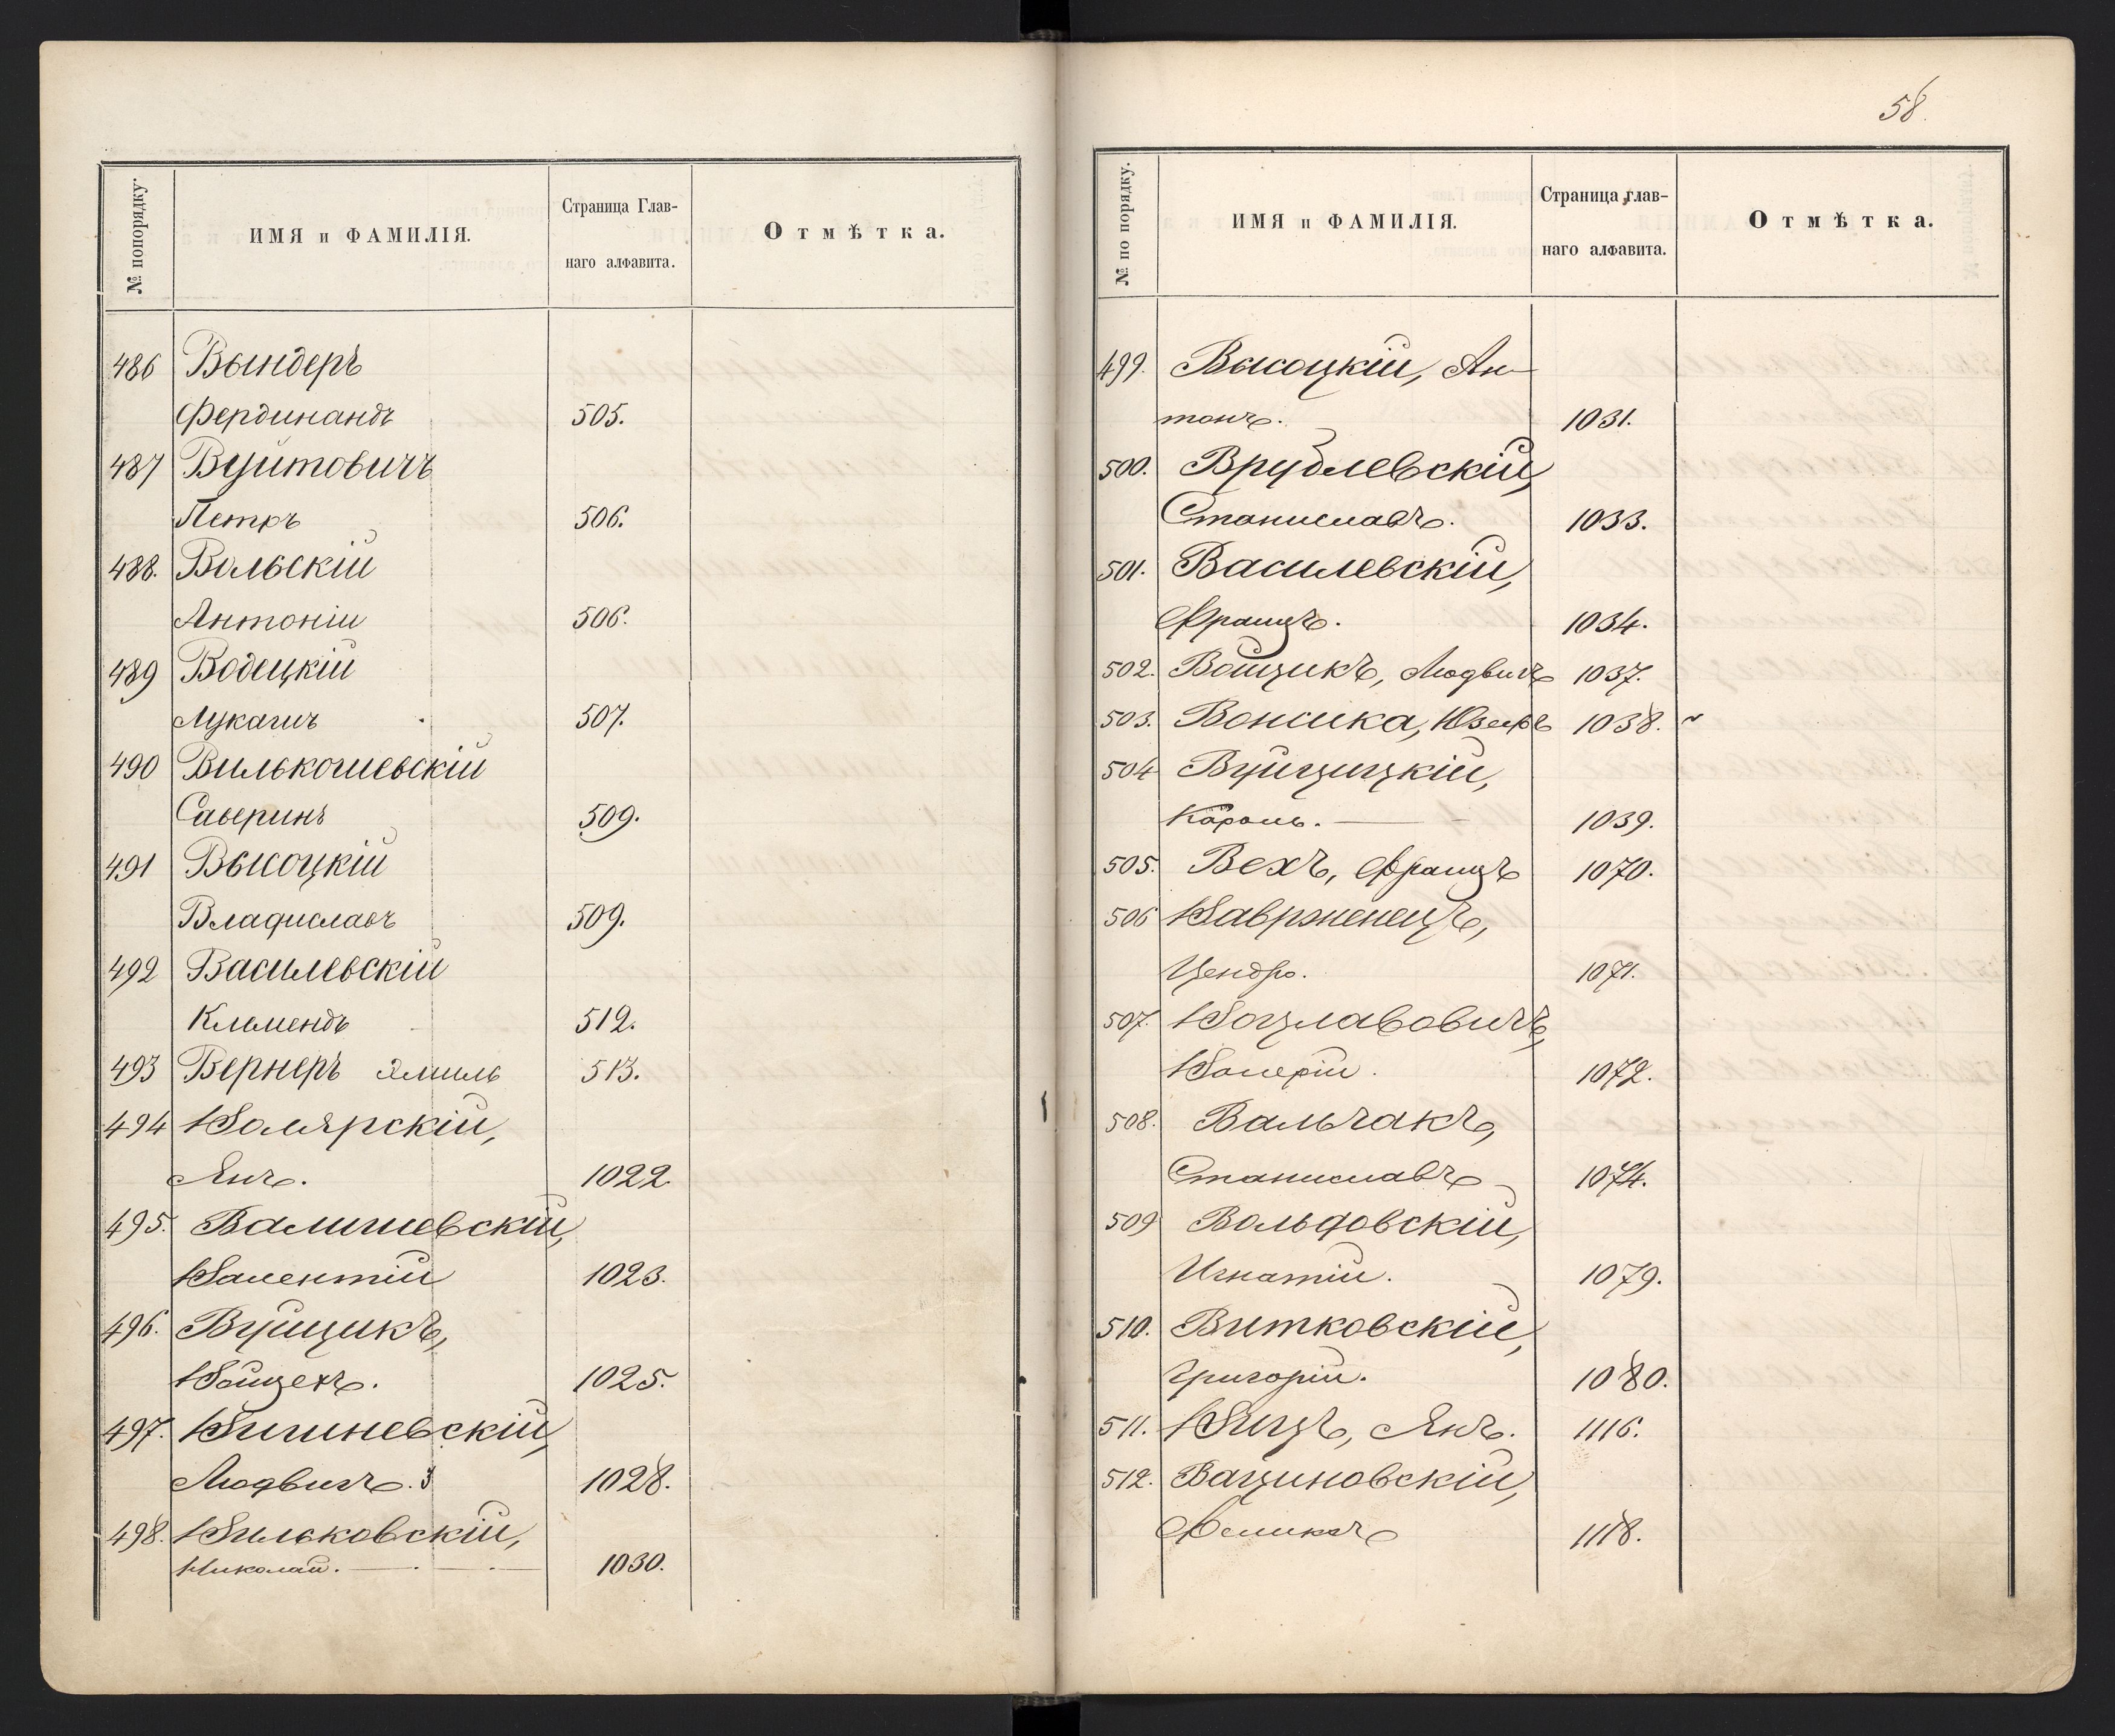 № попорядку.
ИМЯ и ФАМИЛІЯ.
Страница Глав-
наго алфавита.
Отмѣтка.
486 Вындеръ
Фердинандъ 505.
487 Вуйтовичъ
Петръ 506.
488. Вольскій
Антоній 506.
489 Водецкій
Лукашъ 507.
490 Вилькошевскій
Саверинъ 509.
491 Высоцкій
Владиславъ 509.
492 Василевскій
Клемендъ 512.
493 Вернеръ Эмиль 513.
494 Волярскій,
Янъ. 1022
495. Валишевскій,
Валентій 1023.
496. Вуйцикъ,
Войцехъ. 1025.
497. Вишневскій,
Людвигъ. 1028.
498. Вильковскій,
Николай. 1030.
58.
№ по порядку.
ИМЯ и ФАМИЛІЯ.
Страница глав-
наго алфавита.
Отмѣтка.
499. Высоцкій, Ан-
тонъ. 1031.
500. Врублевскій,
Станиславъ. 1033.
501. Василевскій,
Францъ. 1034.
502. Войцикъ, Людвигъ 1037.
503. Вонсика, Юзефъ 1038.
504 Вуйцицкій,
Кароль. 1039.
505. Вехъ, Францъ 1070.
506 Ваврженецъ,
1071.
507. Воцлавовичъ,
Валерій. 1072.
508. Вальчакъ,
Станиславъ 1074.
509 Вольфовскій,
Игнатій. 1079.
510. Витковскій,
Григорій. 1080.
511. Янъ. 1116.
512. Вациновскій,
Феликсъ 1118.